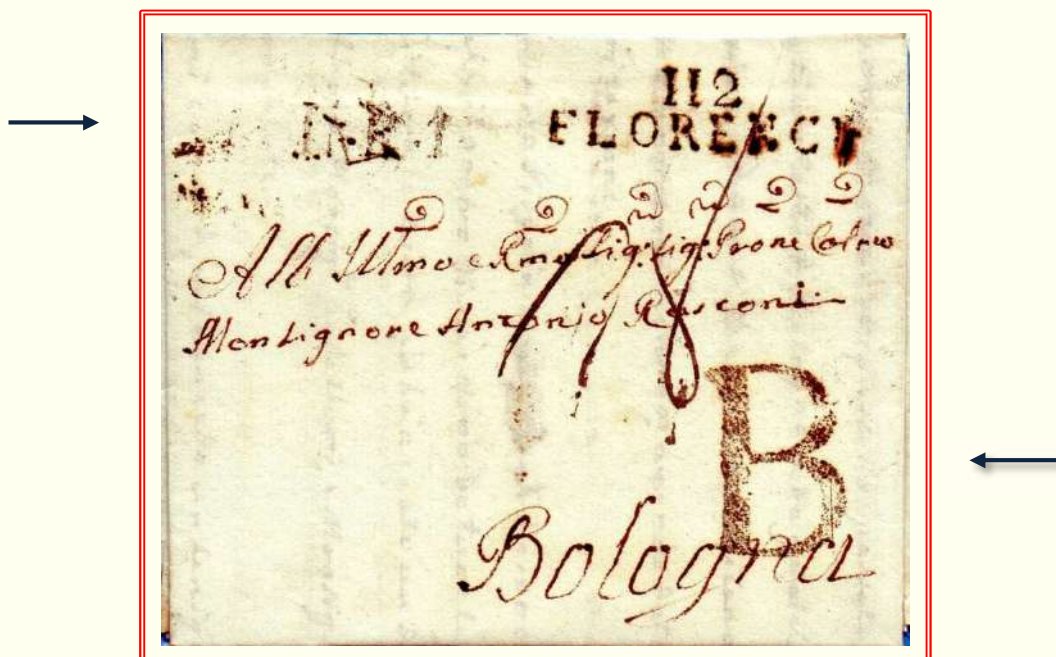 112
FLORENCE
All Illmo e Rmo Sig: Sig: Prone
Monsignore Antonio Rusconi
B
Bologna